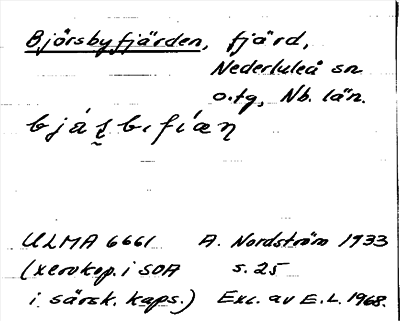 Bjôrsbyfjärden, fjärd,
Nederluleå sn
o.tg, Nb. län.
ULMA 6661 A. Nordström 1933
(xerokop. i SOA s. 25
i särsk. kaps.) Exc. av E.L. 1968.